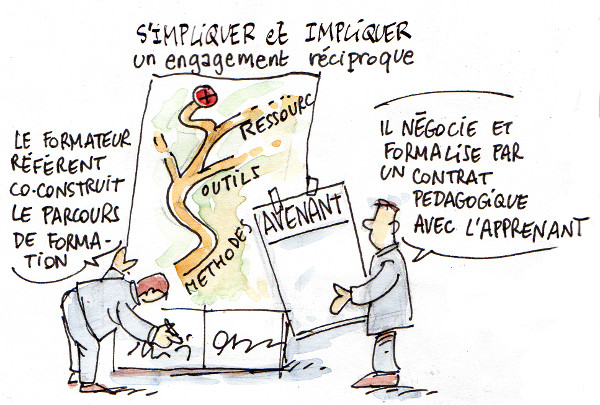 S'IMPLIQUER et IMPLIQUER
un engagement réciproque
LE FORMATEUR
RÉFÉRENT
CO-CONSTRUIT
LE PARCOURS
DE FORMA-
TION
RESSOURC
OUTILS
METHODES
AVENANT
IL NÉGOCIE ET
FORMALISE PAR
UN CONTRAT
PEDAGOGIQUE
AVEC L'APPRENANT